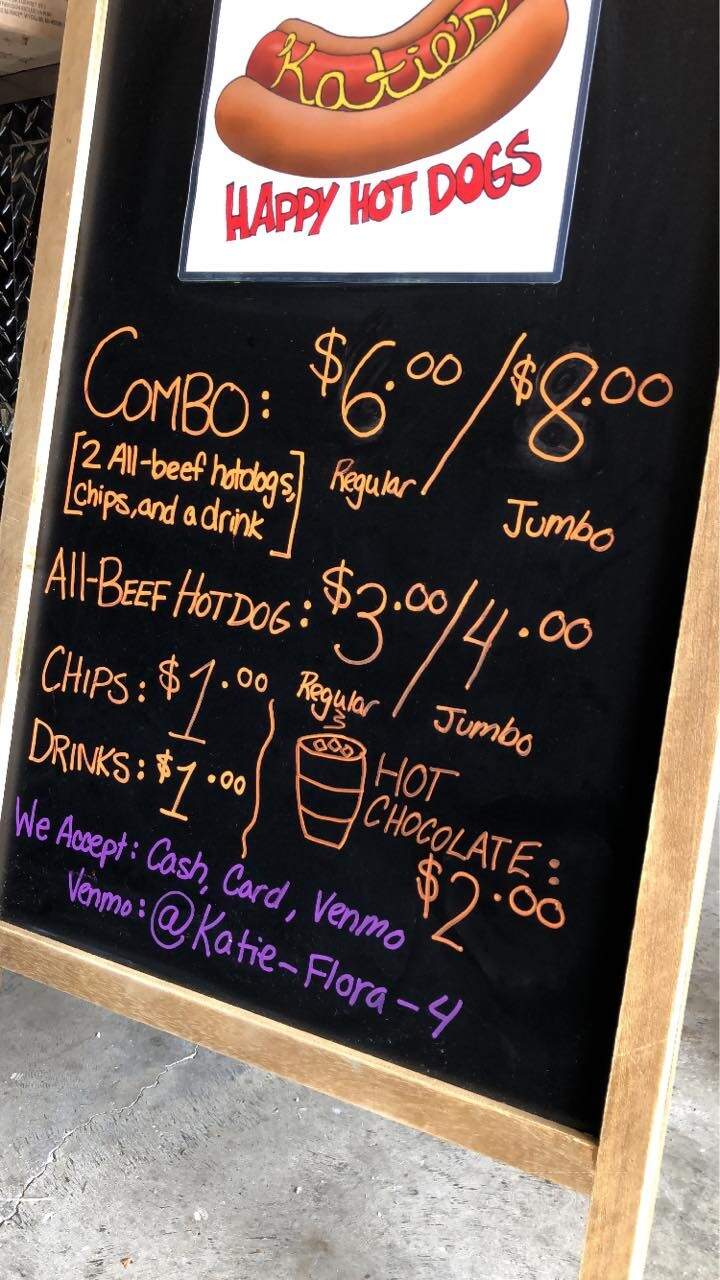 Katie's
HAPPY HOT DOGS
COMBO: $6.00 / $8.00
[2 All-beef hotdogs, Regular Jumbo
chips, and a drink]
All-BEEF HOT DOG: $3.00/4.00
Regular Jumbo
CHIPS: $1.00
DRINKS: $1.00
HOT
CHOCOLATE:
$2.00
We Accept: Cash, Card, Venmo
Venmo: @Katie-Flora-4